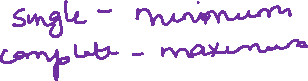 single - minimum
complete - maximum